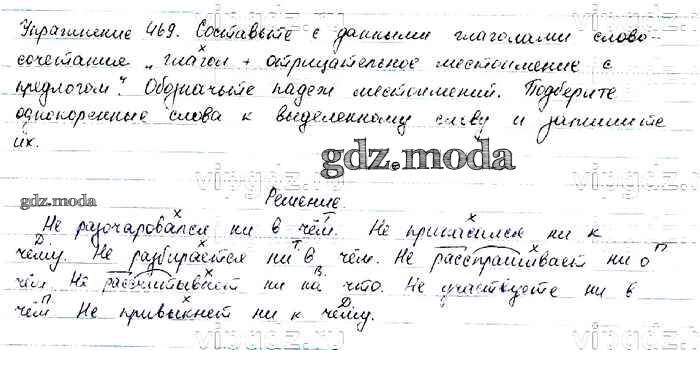 Упражнение 469. Составьте с данными глаголами слово-
сочетания „глагол + отрицательное местоимение с
предлогом". Обозначьте падеж местоимений. Подберите
однокоренные слова к выделенному слову и запишите
их.
gdz.moda
gdz.moda
Решение
Не разочаровался ни в чём. Не прикасался ни к
чему. Не разбирается ни в чём. Не расспрашивает ни о
чём. Не рассчитывает ни на что. Не участвуете ни в
чём. Не привыкнет ни к чему.
vipgdz.ru